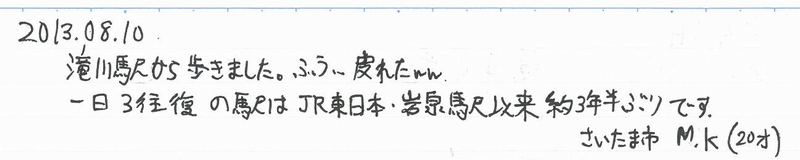 2013.08.10
滝川駅から歩きました。ふう、、疲れたww
一日3往復の駅はJR東日本・岩泉駅以来約3年半ぶりです。
さいたま市 M.K(20才)